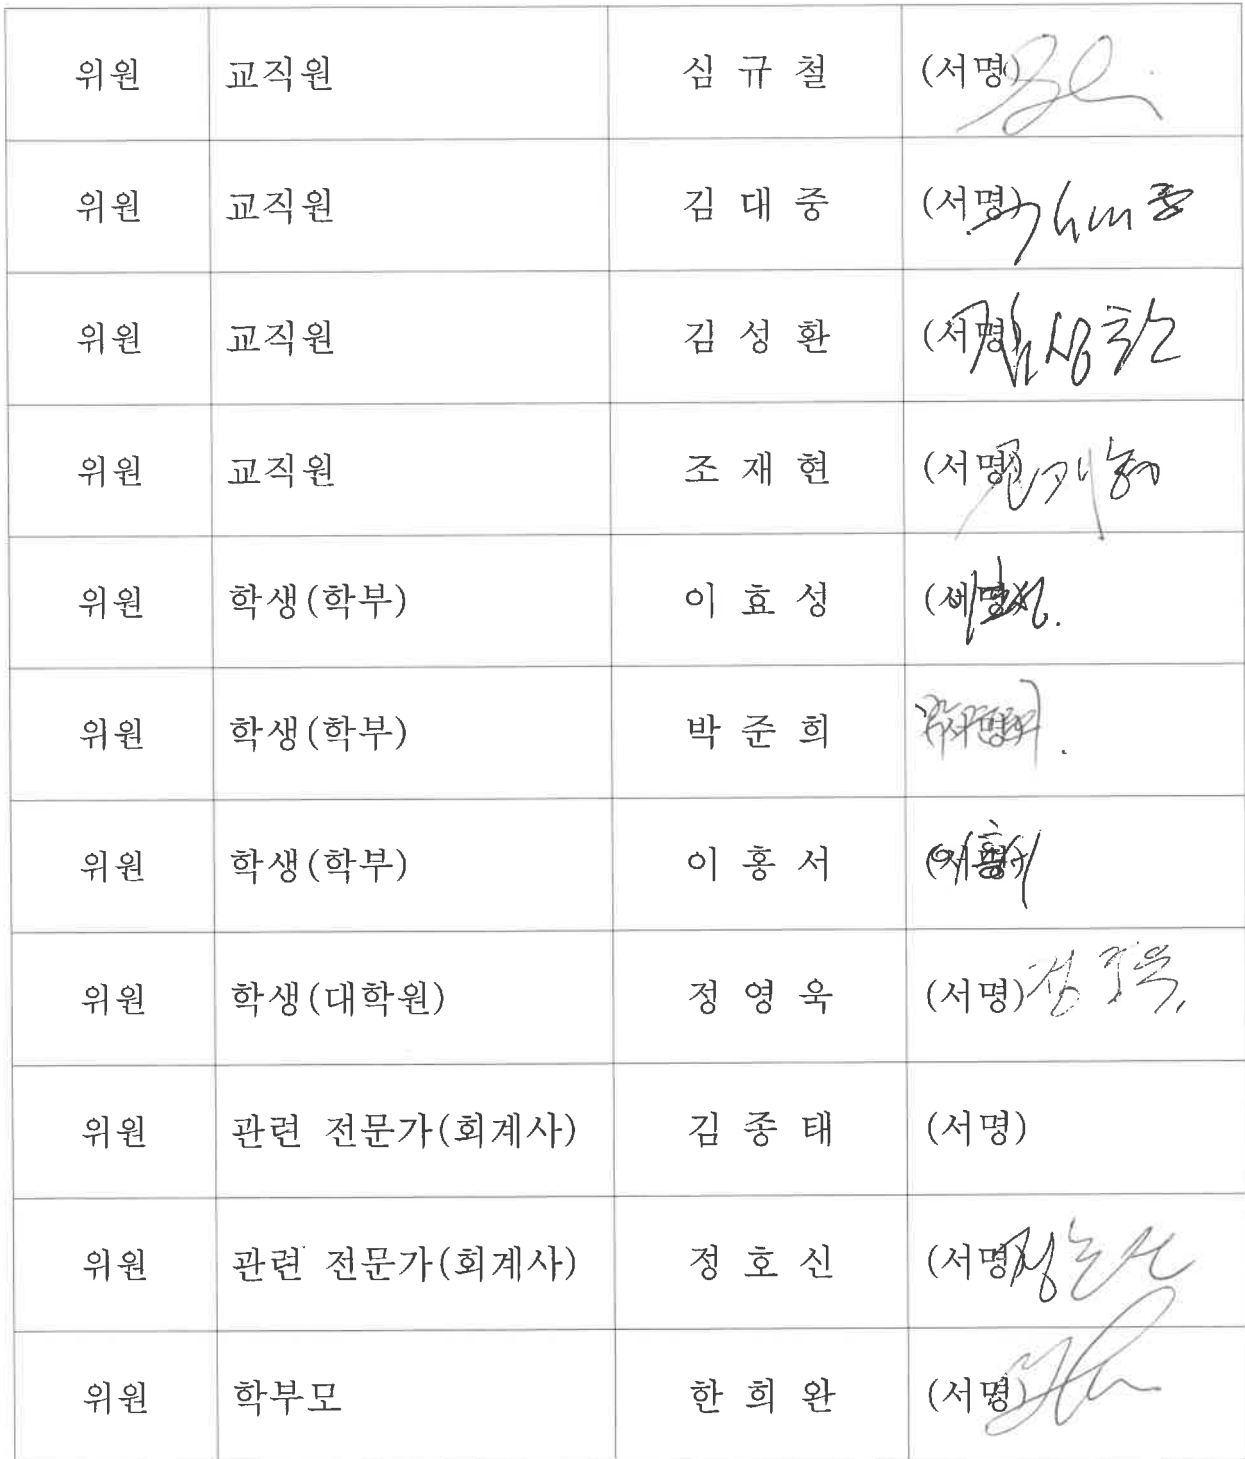 위원 교직원 심 규 철 (서명)
위원 교직원 김 대 중 (서명) 김대중
위원 교직원 김 성 환 (서명) 김성환
위원 교직원 조 재 현 (서명)
위원 학생(학부) 이 효 성 (서명) 이효성.
위원 학생(학부) 박 준 희 (서명)
위원 학생(학부) 이 홍 서 (서명) 이홍서
위원 학생(대학원) 정 영 욱 (서명)
위원 관련 전문가(회계사) 김 종 태 (서명)
위원 관련 전문가(회계사) 정 호 신 (서명) 정호신
위원 학부모 한 희 완 (서명)